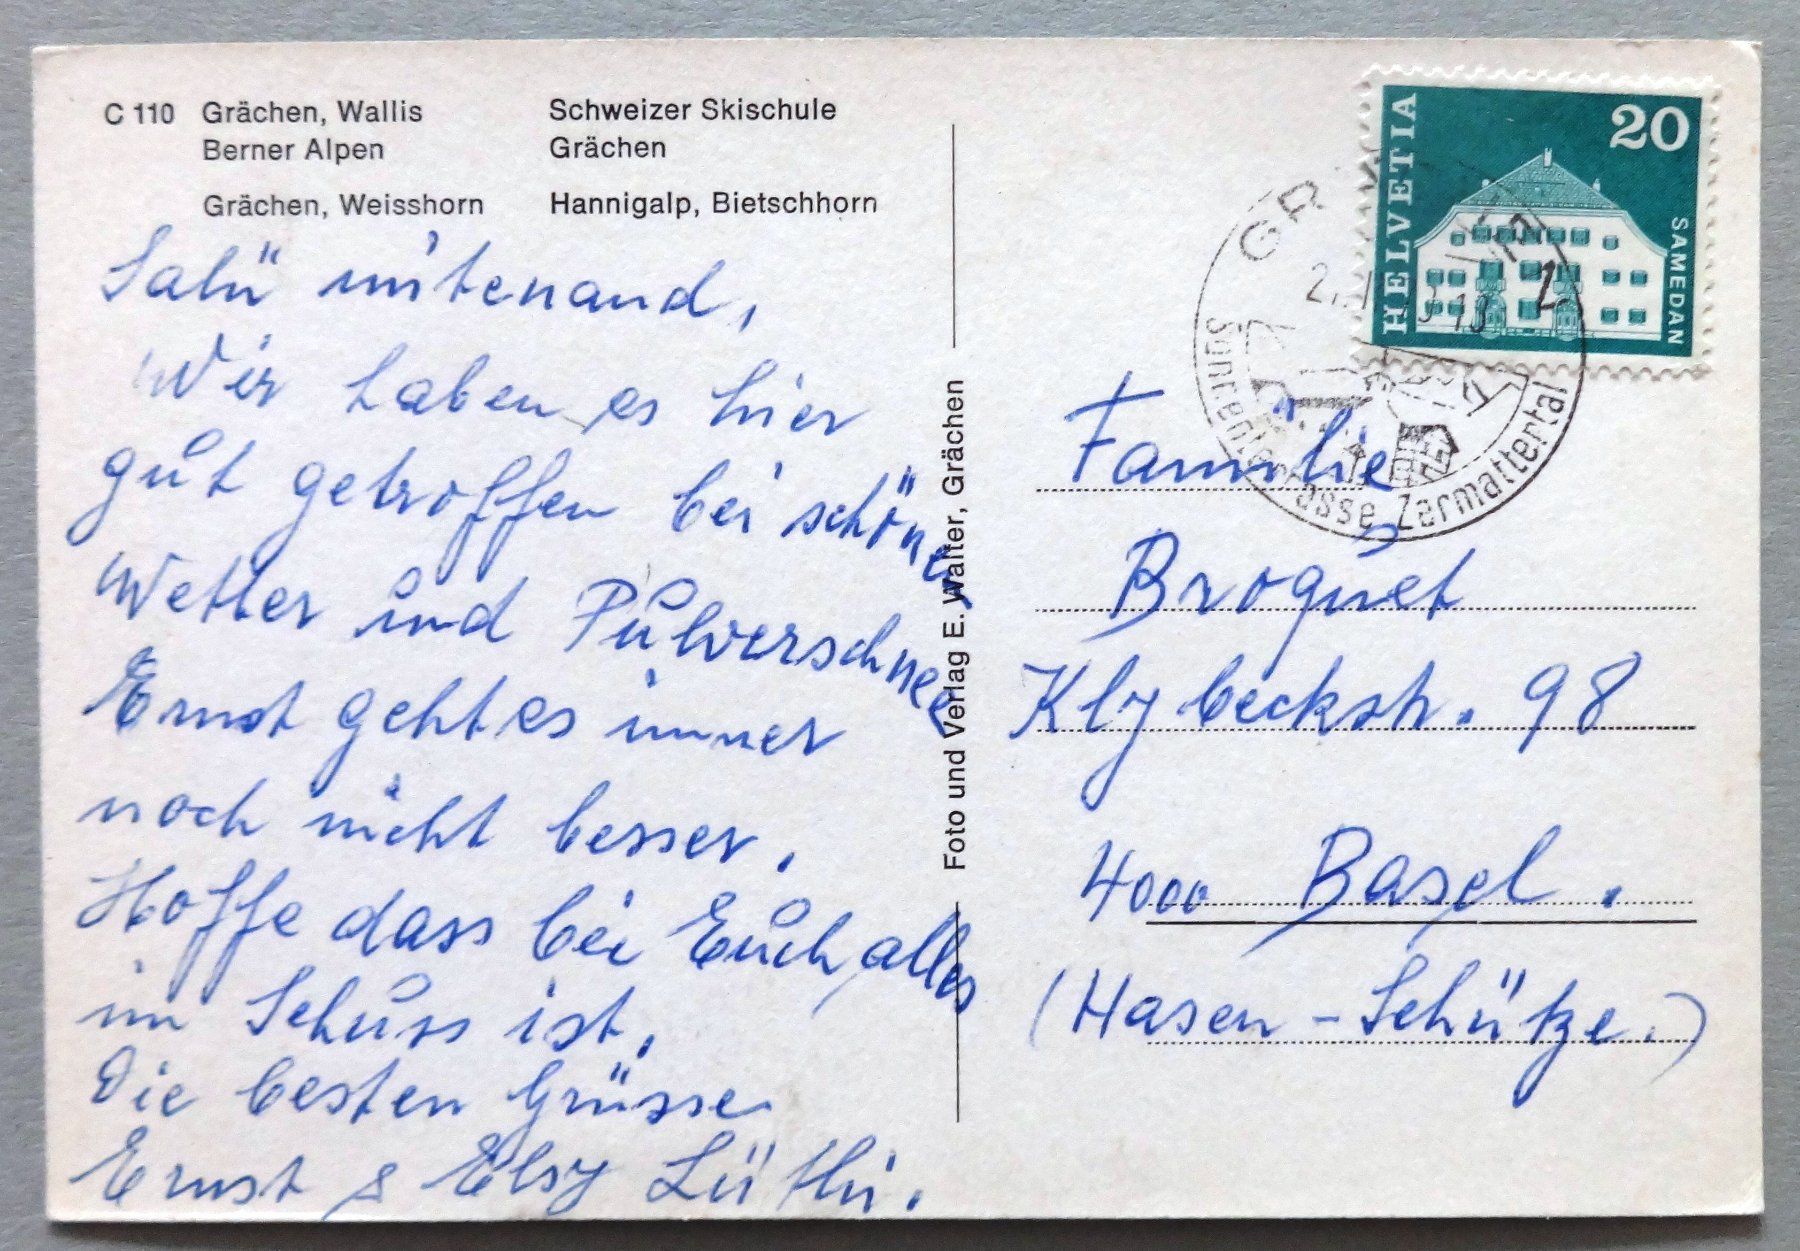 C 110 Grächen, Wallis
Berner Alpen
Grächen, Weisshorn
Schweizer Skischule
Grächen
Hannigalp, Bietschhorn
Salü mitenand,
Wir haben es hier
gut getroffen bei schönem
Wetter und Pulverschnee
Ernst geht es immer
noch nicht besser.
Hoffe dass bei Euch alles
im Schuss ist.
Die besten Grüsse
Ernst & Elsy Lüthi.
Foto und Verlag E. Walter, Grächen
HELVETIA
20
SAMEDAN
Sonnenterrasse Zermattertal
Familie
Broquet
Klybeckstr. 98
4000 Basel.
(Hasen-Schütze.)